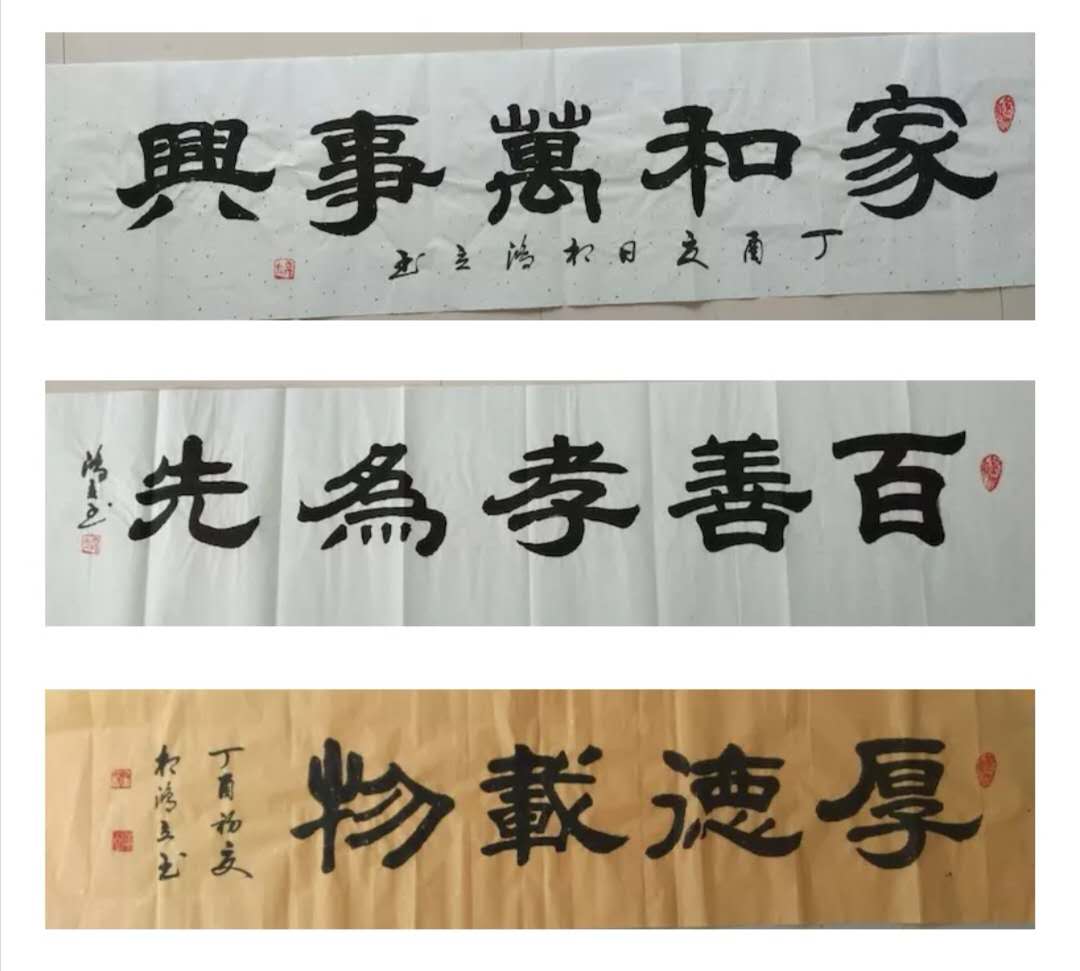 家和萬事興
丁酉夏日 鴻立书
百善孝為先
鴻立书
厚德載物
丁酉初夏
鴻立书